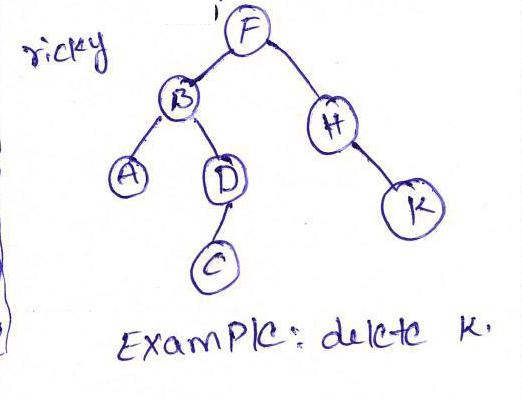 ricky
F
B
H
A
D
K
C
Example: delete K.